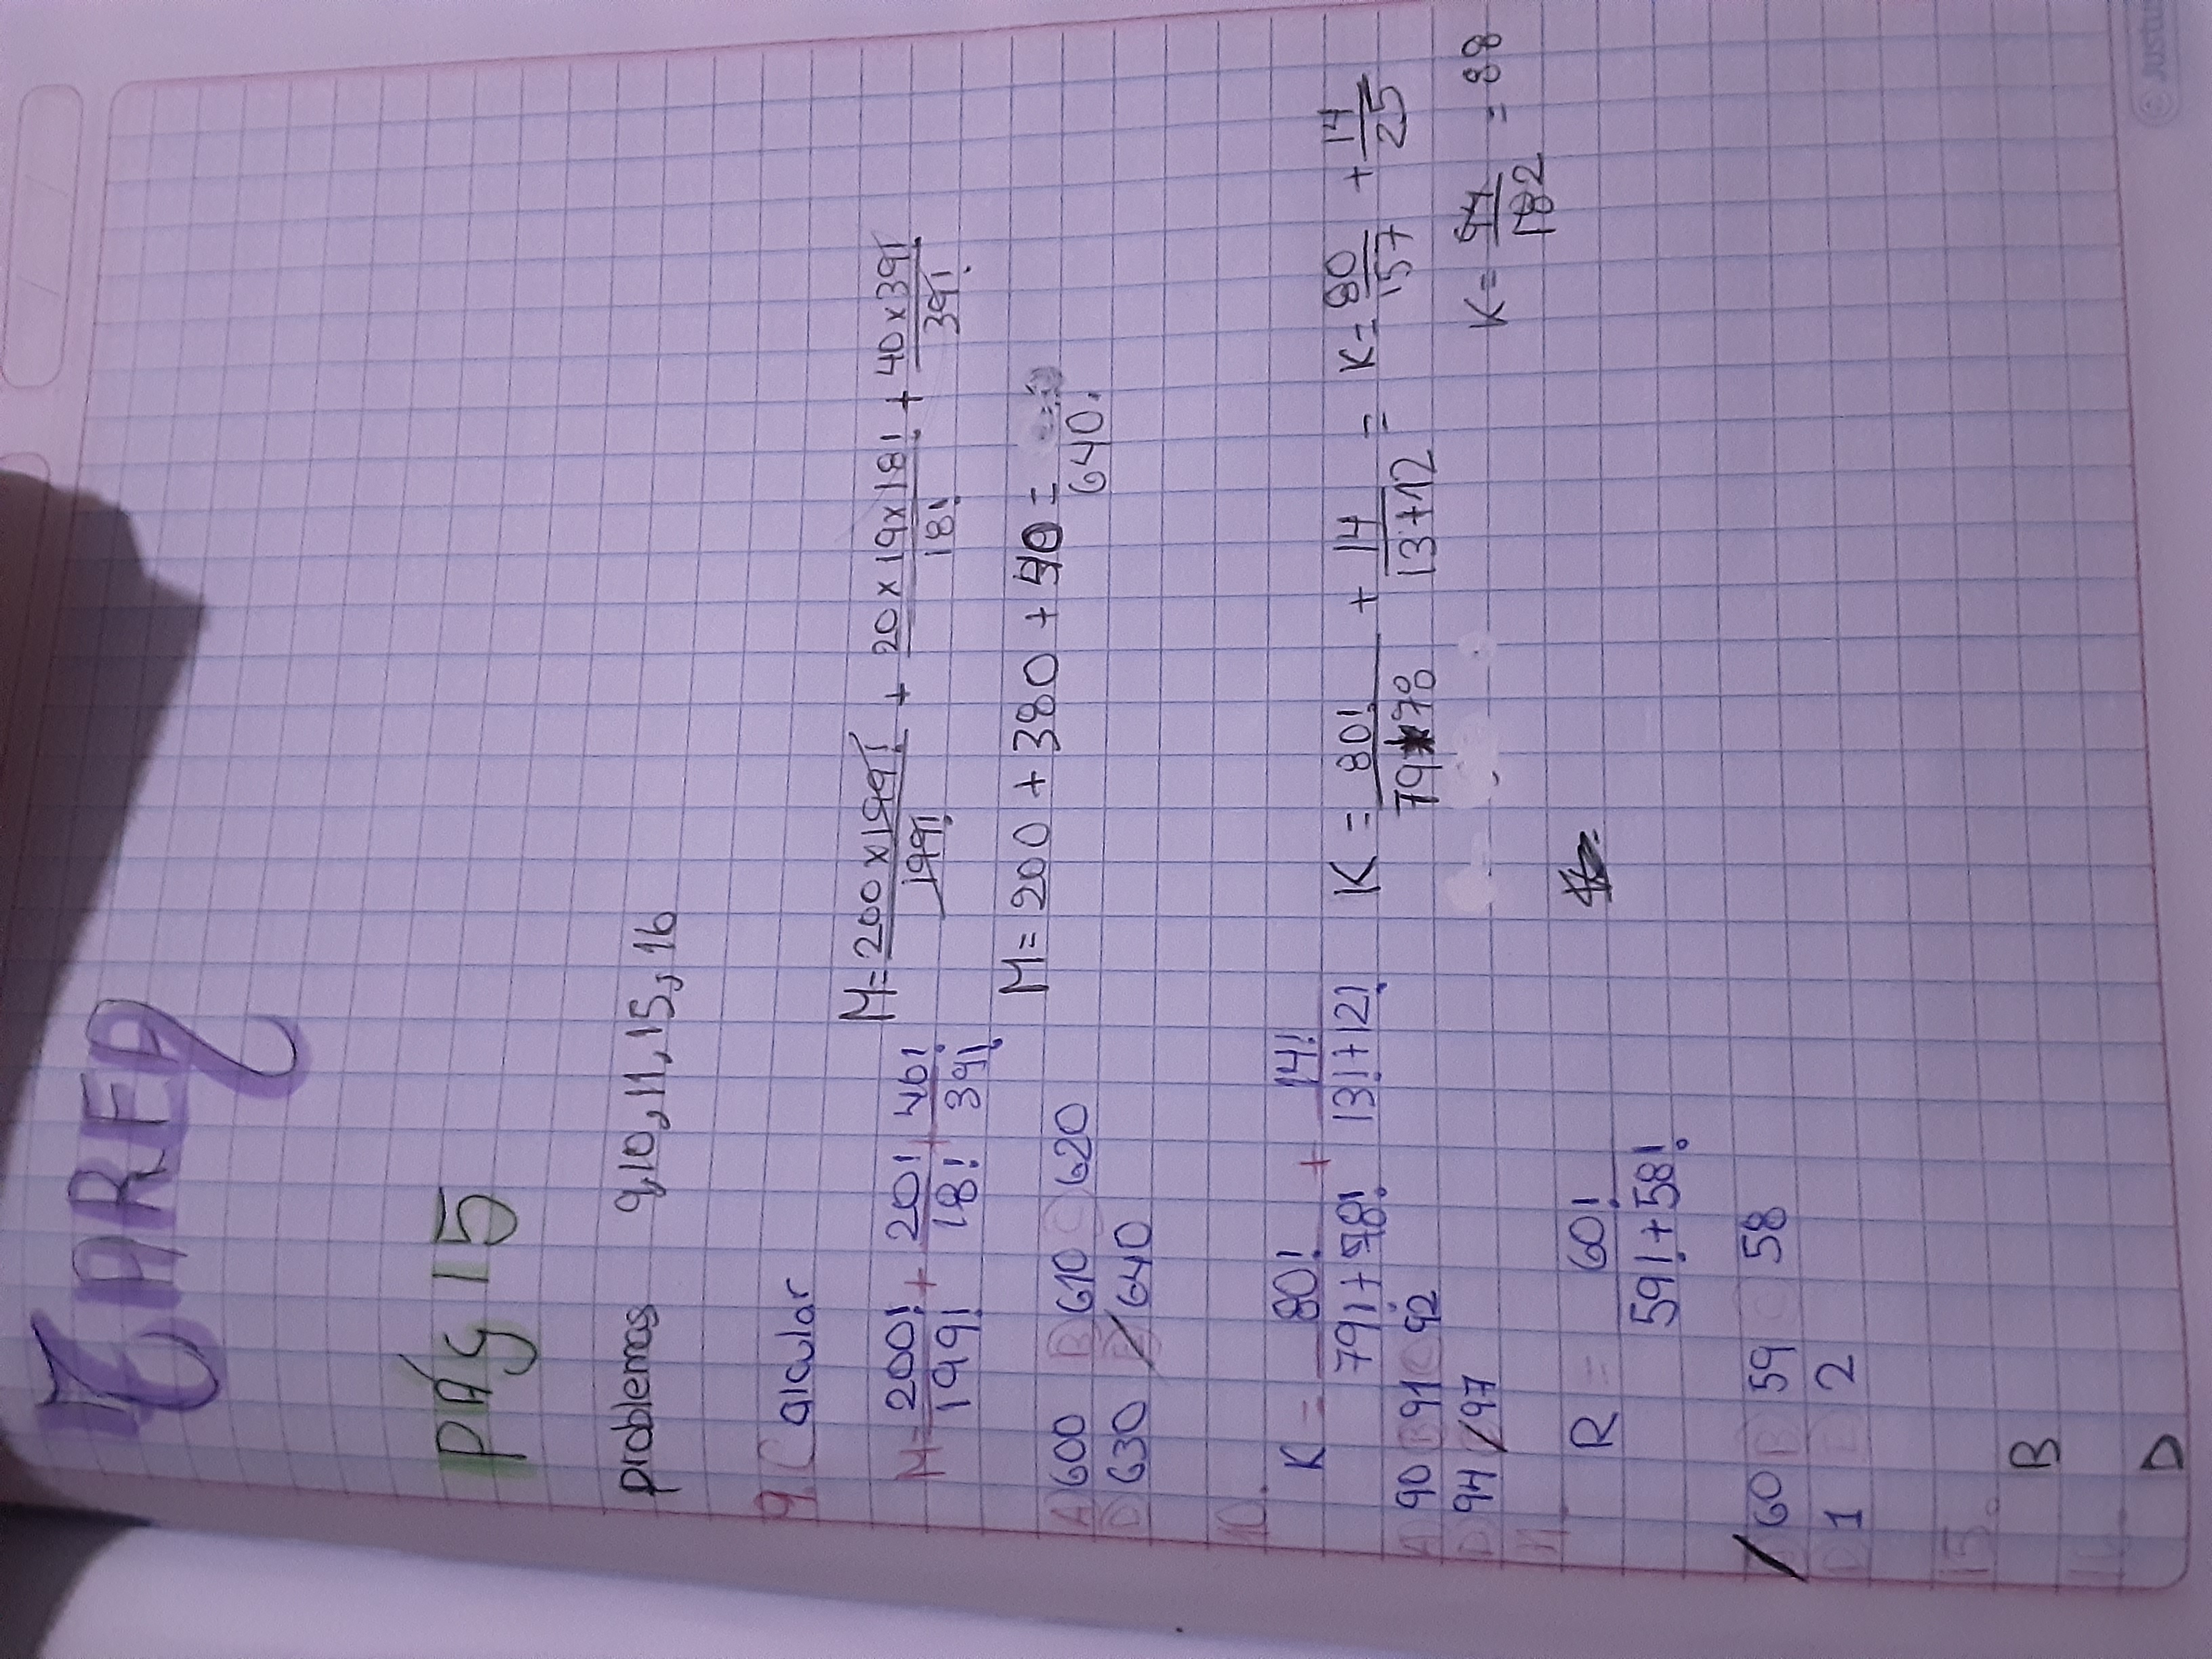 TAREA
PÁG 15
problemas 9,10, 11, 15, 16
9. Calcular
M = 200!/199! + 20!/18! + 40!/39!
M = 200 x 199!/199! + 20 x 19 x 18!/18! + 40 x 39!/39!
M = 200 + 380 + 40 =
640.
A) 600 B) 610 C) 620
D) 630 E) 640
10.
K = 80!/79! + 78! + 14!/13! + 12!
K = 80!/79+78 + 14/13+12 = K = 80/157 + 14/25
K = 94/182 = 88
A 90 B 91 C 92
D 94 97
11.
R = 60!/59! + 58!
60 B 59 C 58
D 1 E 2
15.
B
16.
D
© Justus